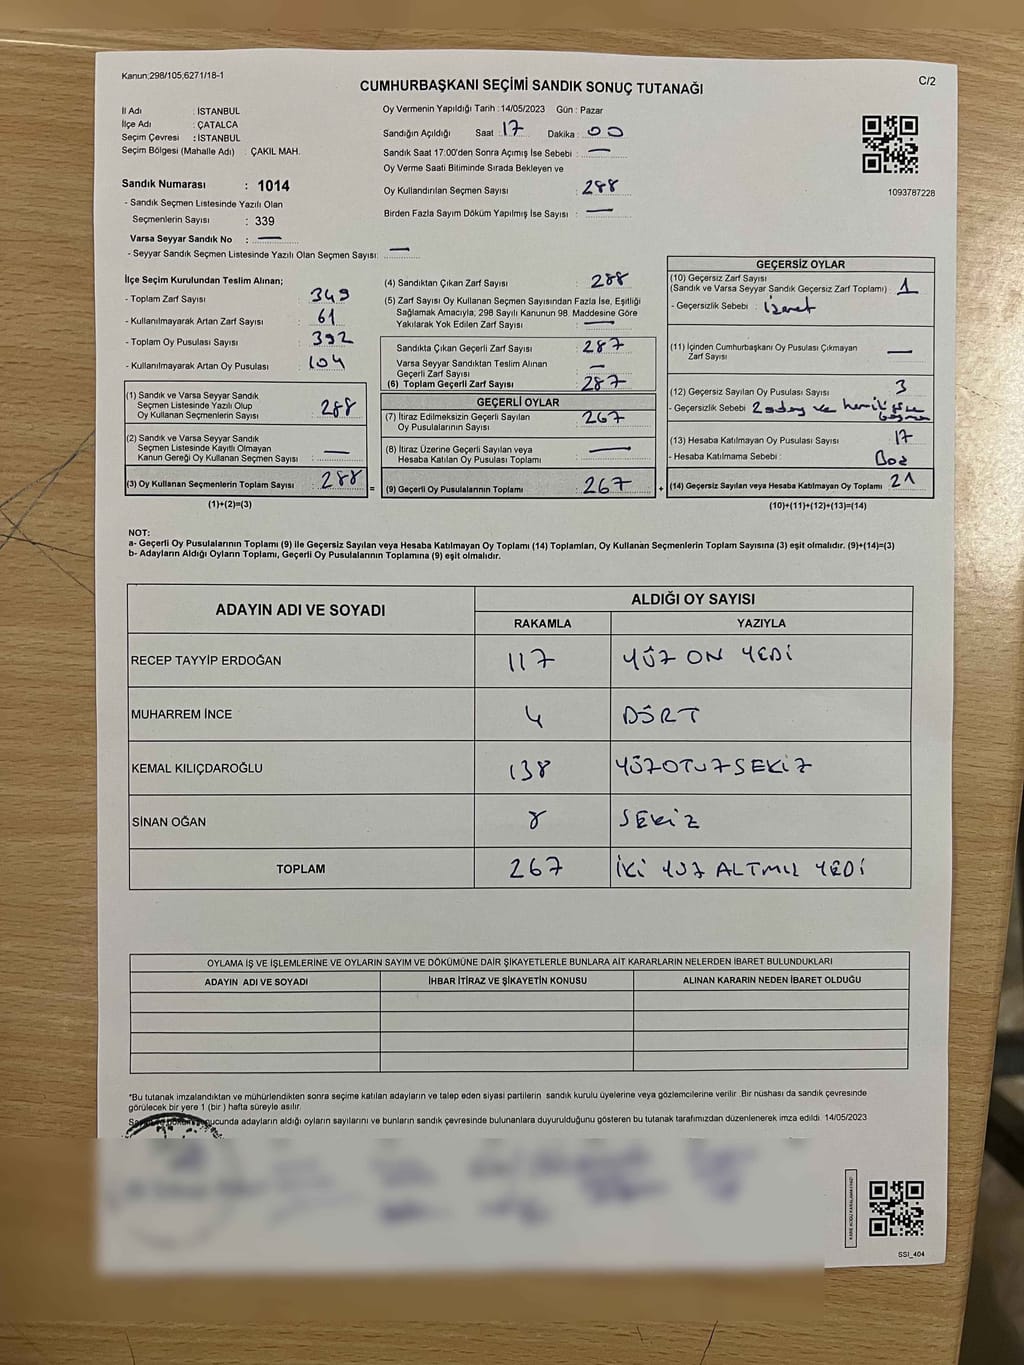 Kanun;298/105,6271/18-1
CUMHURBAŞKANI SEÇİMİ SANDIK SONUÇ TUTANAĞI
C/2
İl Adı : İSTANBUL
İlçe Adı : ÇATALCA
Seçim Çevresi : İSTANBUL
Seçim Bölgesi (Mahalle Adı) : ÇAKIL MAH.
Sandık Numarası : 1014
- Sandık Seçmen Listesinde Yazılı Olan
Seçmenlerin Sayısı : 339
Varsa Seyyar Sandık No : —
- Seyyar Sandık Seçmen Listesinde Yazılı Olan Seçmen Sayısı: —
Oy Vermenin Yapıldığı Tarih : 14/05/2023 Gün : Pazar
Sandığın Açıldığı Saat : 17 Dakika : 00
Sandık Saat 17:00'den Sonra Açımış İse Sebebi : —
Oy Verme Saati Bitiminde Sırada Bekleyen ve
Oy Kullandırılan Seçmen Sayısı : 288
Birden Fazla Sayım Döküm Yapılmış İse Sayısı : —
1093787228
İlçe Seçim Kurulundan Teslim Alınan;
- Toplam Zarf Sayısı : 349
- Kullanılmayarak Artan Zarf Sayısı : 61
- Toplam Oy Pusulası Sayısı : 392
- Kullanılmayarak Artan Oy Pusulası : 104
(1) Sandık ve Varsa Seyyar Sandık
Seçmen Listesinde Yazılı Olup
Oy Kullanan Seçmenlerin Sayısı : 288
(2) Sandık ve Varsa Seyyar Sandık
Seçmen Listesinde Kayıtlı Olmayan
Kanun Gereği Oy Kullanan Seçmen Sayısı : —
(3) Oy Kullanan Seçmenlerin Toplam Sayısı : 288
(1)+(2)=(3)
(4) Sandıktan Çıkan Zarf Sayısı : 288
(5) Zarf Sayısı Oy Kullanan Seçmen Sayısından Fazla İse, Eşitliği
Sağlamak Amacıyla, 298 Sayılı Kanunun 98. Maddesine Göre
Yakılarak Yok Edilen Zarf Sayısı : —
Sandıkta Çıkan Geçerli Zarf Sayısı : 287
Varsa Seyyar Sandıktan Teslim Alınan
Geçerli Zarf Sayısı : —
(6) Toplam Geçerli Zarf Sayısı : 287
GEÇERLİ OYLAR
(7) İtiraz Edilmeksizin Geçerli Sayılan
Oy Pusulalarının Sayısı : 267
(8) İtiraz Üzerine Geçerli Sayılan veya
Hesaba Katılan Oy Pusulası Toplamı : —
= (9) Geçerli Oy Pusulalarının Toplamı : 267
GEÇERSİZ OYLAR
(10) Geçersiz Zarf Sayısı
(Sandık ve Varsa Seyyar Sandık Geçersiz Zarf Toplamı) : 1
- Geçersizlik Sebebi : İşaret
(11) İçinden Cumhurbaşkanı Oy Pusulası Çıkmayan
Zarf Sayısı —
(12) Geçersiz Sayılan Oy Pusulası Sayısı : 3
- Geçersizlik Sebebi : 2 aday ve
(13) Hesaba Katılmayan Oy Pusulası Sayısı : 17
- Hesaba Katılmama Sebebi : Boş
+ (14) Geçersiz Sayılan veya Hesaba Katılmayan Oy Toplamı : 21
(10)+(11)+(12)+(13)=(14)
NOT:
a- Geçerli Oy Pusulalarının Toplamı (9) ile Geçersiz Sayılan veya Hesaba Katılmayan Oy Toplamı (14) Toplamları, Oy Kullanan Seçmenlerin Toplam Sayısına (3) eşit olmalıdır. (9)+(14)=(3)
b- Adayların Aldığı Oyların Toplamı, Geçerli Oy Pusulalarının Toplamına (9) eşit olmalıdır.
ADAYIN ADI VE SOYADI ALDIĞI OY SAYISI
RAKAMLA YAZIYLA
RECEP TAYYİP ERDOĞAN 117 YÜZ ON YEDİ
MUHARREM İNCE 4 DÖRT
KEMAL KILIÇDAROĞLU 138 YÜZOTUZSEKİZ
SİNAN OĞAN 8 SEKİZ
TOPLAM 267 İKİ YÜZ ALTMIŞ YEDİ
OYLAMA İŞ VE İŞLEMLERİNE VE OYLARIN SAYIM VE DÖKÜMÜNE DAİR ŞİKAYETLERLE BUNLARA AİT KARARLARIN NELERDEN İBARET BULUNDUKLARI
ADAYIN ADI VE SOYADI İHBAR İTİRAZ VE ŞİKAYETİN KONUSU ALINAN KARARIN NEDEN İBARET OLDUĞU
*Bu tutanak imzalandıktan ve mühürlendikten sonra seçime katılan adayların ve talep eden siyasi partilerin sandık kurulu üyelerine veya gözlemcilerine verilir. Bir nüshası da sandık çevresinde
görülecek bir yere 1 (bir) hafta süreyle asılır.
adayların aldığı oyların sayılarını ve bunların sandık çevresinde bulunanlara duyurulduğunu gösteren bu tutanak tarafımızdan düzenlenerek imza edildi. 14/05/2023
SSİ_404